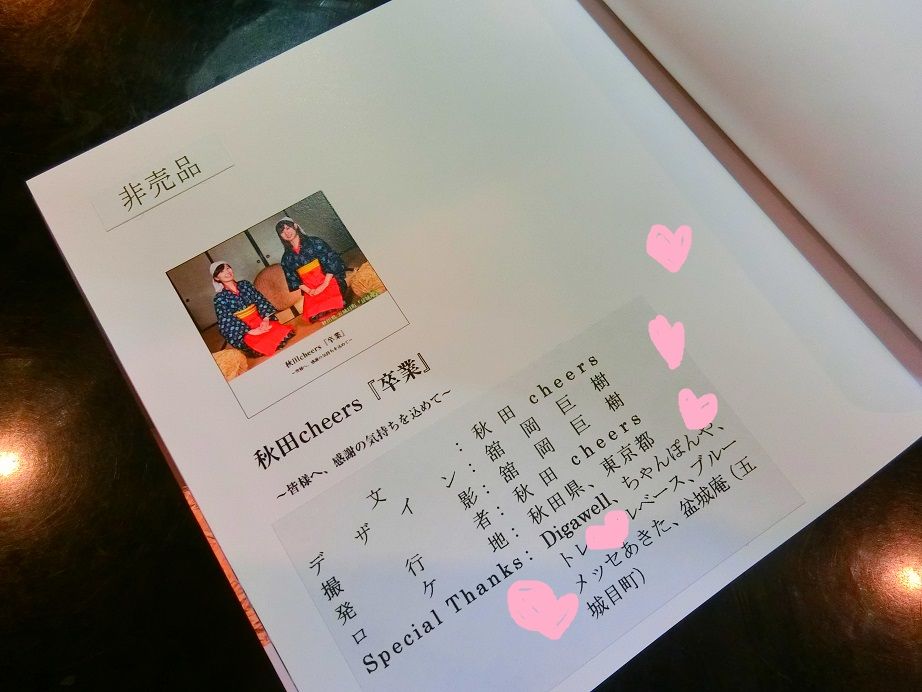 非売品
秋田cheers『卒業』
～皆様へ、感謝の気持ちを込めて～
秋田cheers『卒業』
～皆様へ、感謝の気持ちを込めて～
文：秋田 cheers
デザイン：舘岡巨樹
撮影：舘岡巨樹
発行者：秋田 cheers
ロケ地：秋田県、東京都
Special Thanks：Digawell、ちゃんぽんや、
トレ ルベース、ブルー
メッセあきた、盆城庵（五
城目町）